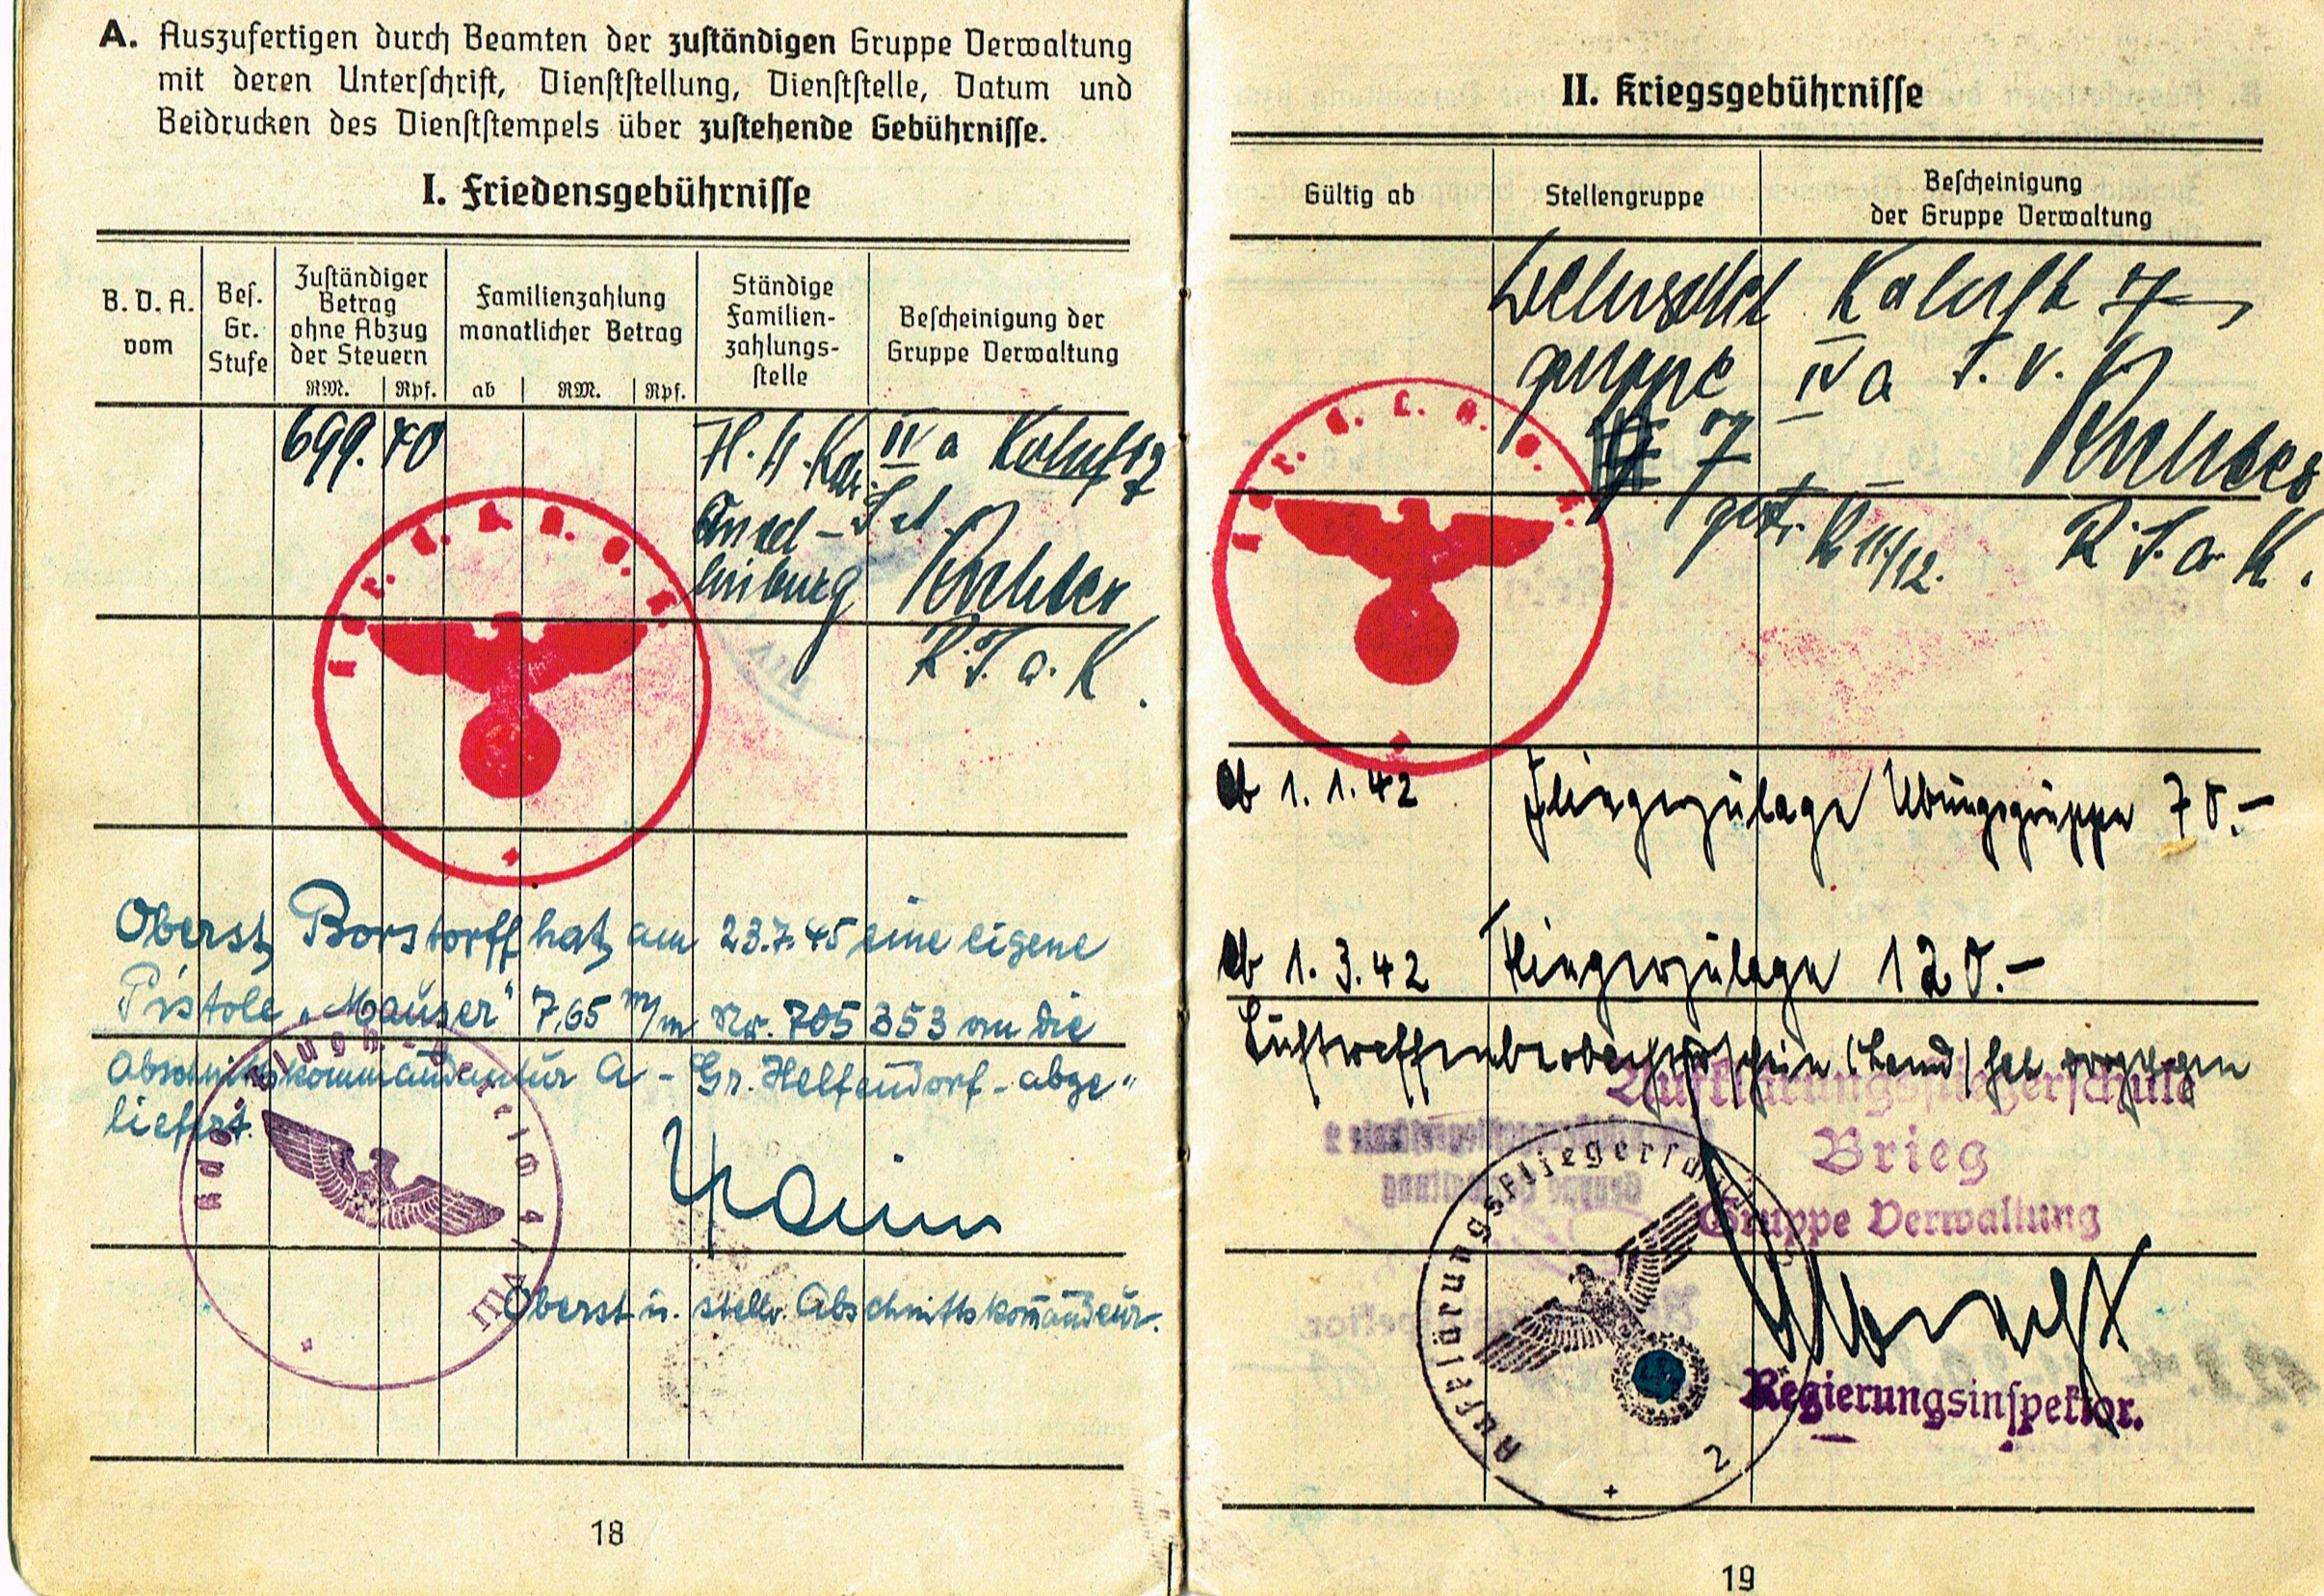 A. Auszufertigen durch Beamten der zuständigen Gruppe Verwaltung
mit deren Unterschrift, Dienststellung, Dienststelle, Datum und
Beidrucken des Dienststempels über zustehende Gebührnisse.
I. Friedensgebührnisse
B. D. A.
vom
Bes.
Gr.
Stufe
Zuständiger
Betrag
ohne Abzug
der Steuern
RM. Rpf.
Familienzahlung
monatlicher Betrag
ab RM. Rpf.
Ständige
Familien-
zahlungs-
stelle
Bescheinigung der
Gruppe Verwaltung
699.70
IV a
R. I. a. K.
Oberst Borstorff hat am 23.7.45 eine eigene
Pistole „Mauser" 7,65 m/m Nr. 705353 an die
Abschnittskommandantur A - Gr. Helfendorf - abge"
liefert.
Oberst u. stellv. Abschnittskomandeur.
18
II. Kriegsgebührnisse
Gültig ab
Stellengruppe
Bescheinigung
der Gruppe Verwaltung
gruppe IV a
7
R. I. a. K.
ab 1. 1. 42 Fliegerzulage Übungsgruppe 70.–
ab 1. 3. 42 Fliegerzulage 120.–
Luftwaffenbeobachterschein (Land) hat vorgelegen
Aufklärungsfliegerschule
Brieg
Gruppe Verwaltung
Aufklärungsfliegerschule
2
Regierungsinspektor.
19